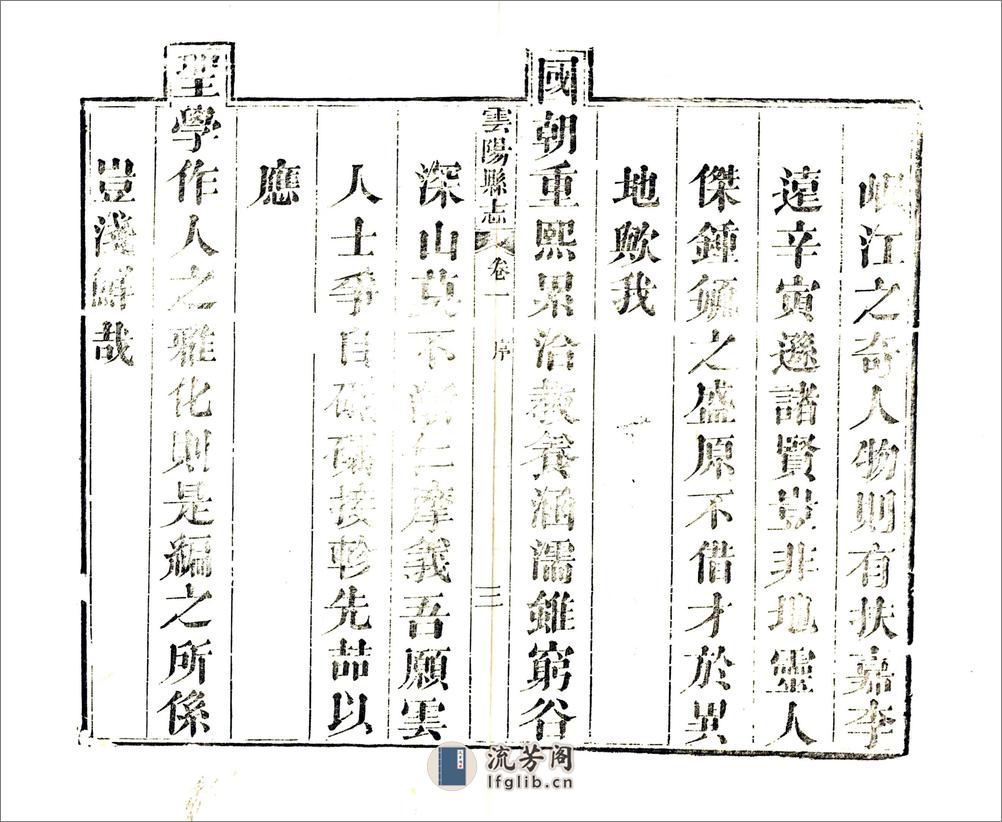 岷江之奇人物則有扶嘉李
遠辛寅遜諸賢豈非地靈人
傑鍾毓之盛原不借才於異
地歟我
國朝重熙累洽教養涵濡雖窮谷
雲陽縣志 卷一 序 三
深山莫不漸仁摩義吾願雲
人士爭自磋磋接軫先喆以
應
聖學作人之雅化則是編之所係
豈淺鮮哉
流芳阁
lfglib.cn